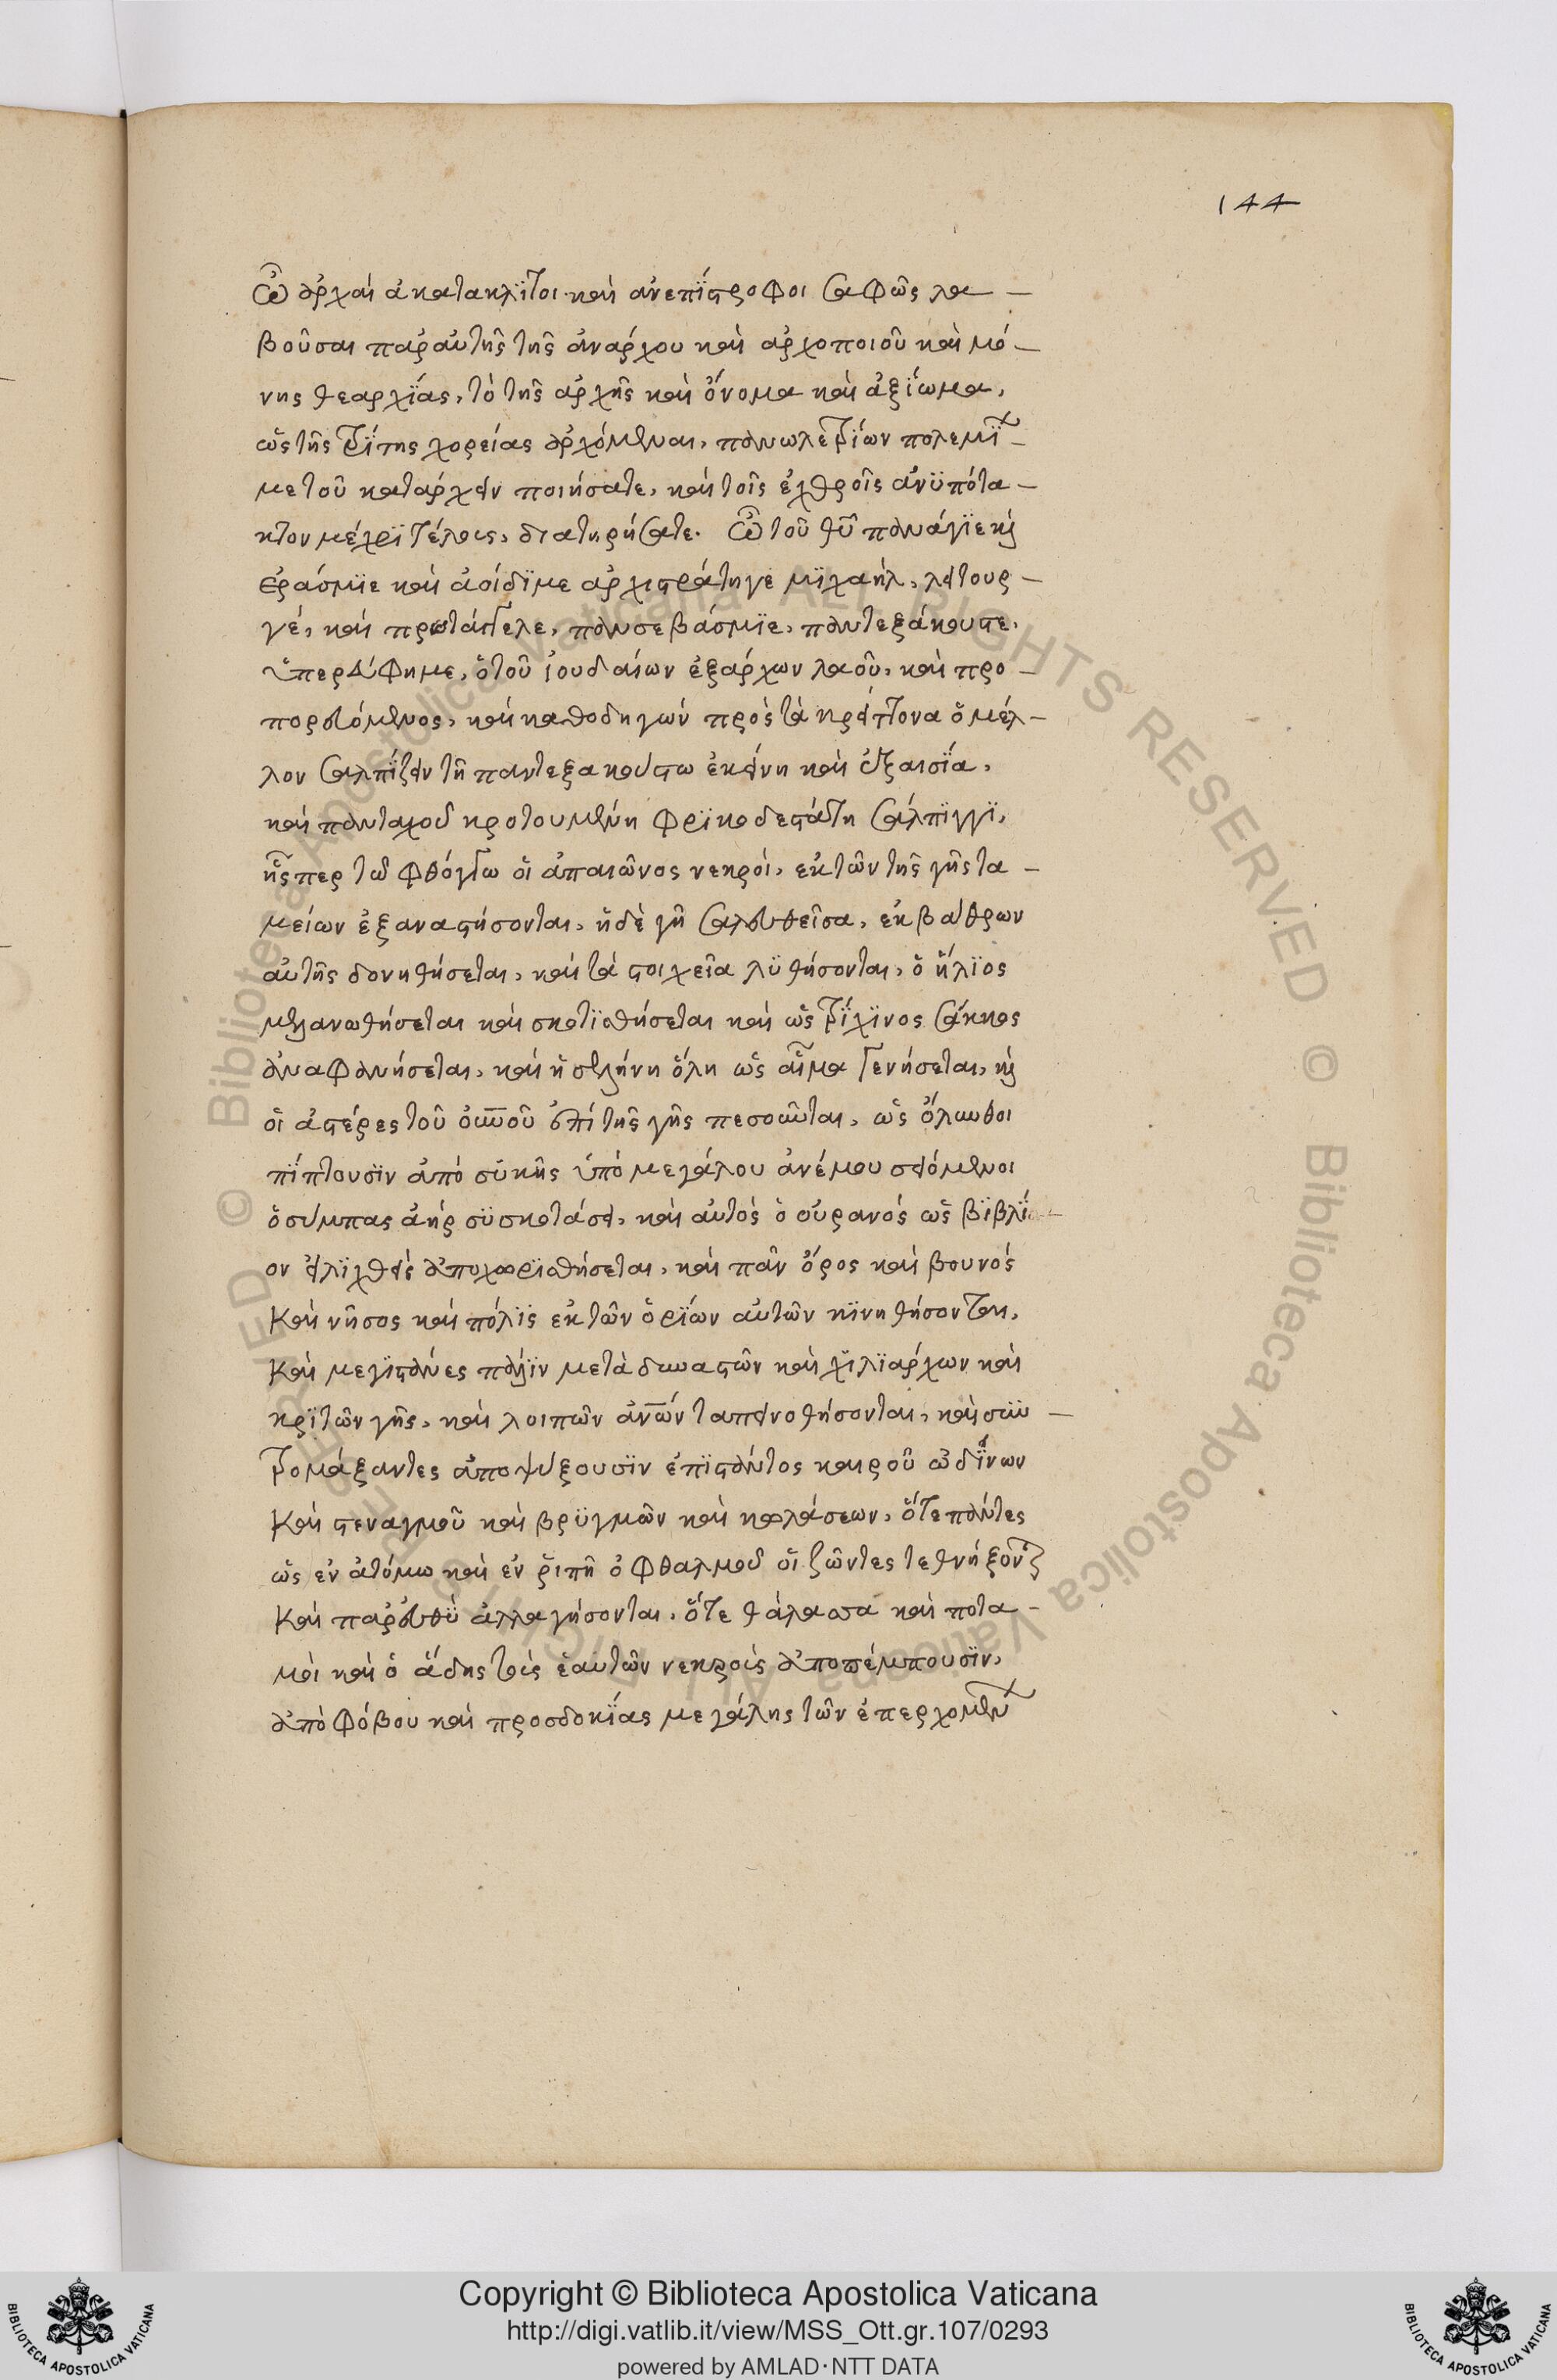 144
Ὦ ἀρχαὶ ἀκατακλϊτοι καὶ ἀνεπΐστροφοι σαφῶς λα –
βοῦσαι παρ αὐτῆς τῆς ἀνάρχου καὶ ἀρχοποιοῦ καὶ μό –
νης θεαρχΐας, τὸ τῆς ἀρχῆς καὶ ὄνομα καὶ ἀξΐωμα,
ὡς τῆς τρΐτης χορείας ἀρχόμεναι, πανωλεθρΐων πολεμΐων
με τοῦ κατάρχειν ποιήσατε, καὶ τοῖς ἐχθροῖς ἀνϋπότα –
κτον μέχρϊ τέλους, διατηρήσατε. Ὦ τοῦ θῡ πανάγϊε καὶ
ἐράσμϊε καὶ ἀοίδϊμε ἀρχιστράτηγε μϊχαήλ, λειτουρ –
γέ, καὶ πρωτάγγελε, πανσεβάσμϊε, παντεξάκουστε,
ὑπερεύφημε, ὁ τοῦ ἰουδαίων ἐξαρχων λαοῦ, καὶ προ –
πορευόμενος, καὶ καθοδηγών πρὸς τὰ κρείττονα ὁ μέλ –
λον σαλπΐζειν τῆ παντεξακούστω ἐκείνη καὶ ἐξαισΐα,
καὶ πανταχοῦ κροτουμένη φρϊκοδεστάτη σάλπϊγγϊ,
ἧς περ τῶ φθόγγω οἱ ἀπαιῶνος νεκροὶ, ἐκ τῶν τῆς γῆς τα –
μείων ἐξαναστήσονται, ἡ δὲ γῆ σαλευθεῖσα, ἐκ βάθρων
αὐτῆς δονηθήσεται, καὶ τὰ στοιχεῖα λϋθήσονται, ὁ ἥλϊος
μελανωθήσεται καὶ σκοτϊσθήσεται καὶ ὡς τρΐχϊνος σάκκος
ἀναφανήσεται, καὶ ἡ σελήνη ὅλη ὡς αἷμα γενήσεται, καὶ
οἱ ἀστέρες τοῦ οὐνοῦ ἐπὶ τῆς γῆς πεσοῦνται, ὡς ὄλυνθοι
πΐπτουσϊν ἀπὸ σϋκῆς ὑπὸ μεγάλου ἀνέμου σειόμενοι
ὁ σύμπας ἀὴρ σϋσκοτάσει, καὶ αὐτὸς ὁ οὐρανός ὡς βϊβλΐ –
ον εἰλϊχθεὶς ἀποχωρϊσθήσεται, καὶ πᾶν ὄρος καὶ βουνὸς
Καὶ νῆσος καὶ πόλϊς ἐκ τῶν ὁρΐων αὐτῶν κϊνηθήσονται,
Καὶ μεγϊστάνες πάλϊν μετὰ δυναστῶν καὶ χϊλϊάρχων καὶ
κρϊτῶν γῆς, καὶ λοιπῶν ἀνῶν ταπεινοθήσονται, καὶ συν –
τρομάξαντες ἀποψύξουσϊν ἐπϊστάντος καιροῦ ὠδΐνων
Καὶ στεναγμοῦ καὶ βρϋγμῶν καὶ κολάσεων, ὅτε πάντες
ὡς ἐν ἀτόμω καὶ ἐν ῥιπῆ ὀφθαλμοῦ οἱ ζῶντες τεθνήξονται
Καὶ παρευθϋ ἀλλαγήσονται, ὅτε θάλασσα καὶ ποτα –
μοὶ καὶ ὁ ἅδης τοὺς ἑαυτῶν νεκροὺς ἀποπέμπουσϊν,
ἀπὸ φόβου καὶ προσδοκΐας μεγάλης τῶν ἐπερχομένων
Copyright © Biblioteca Apostolica Vaticana
http://digi.vatlib.it/view/MSS_Ott.gr.107/0293
powered by AMLAD·NTT DATA
BIBLIOTECA APOSTOLICA VATICANA
BIBLIOTECA APOSTOLICA VATICANA
© Biblioteca Apostolica Vaticana ALL RIGHTS RESERVED © Biblioteca Apostolica Vaticana ALL RIGHTS RESERVED